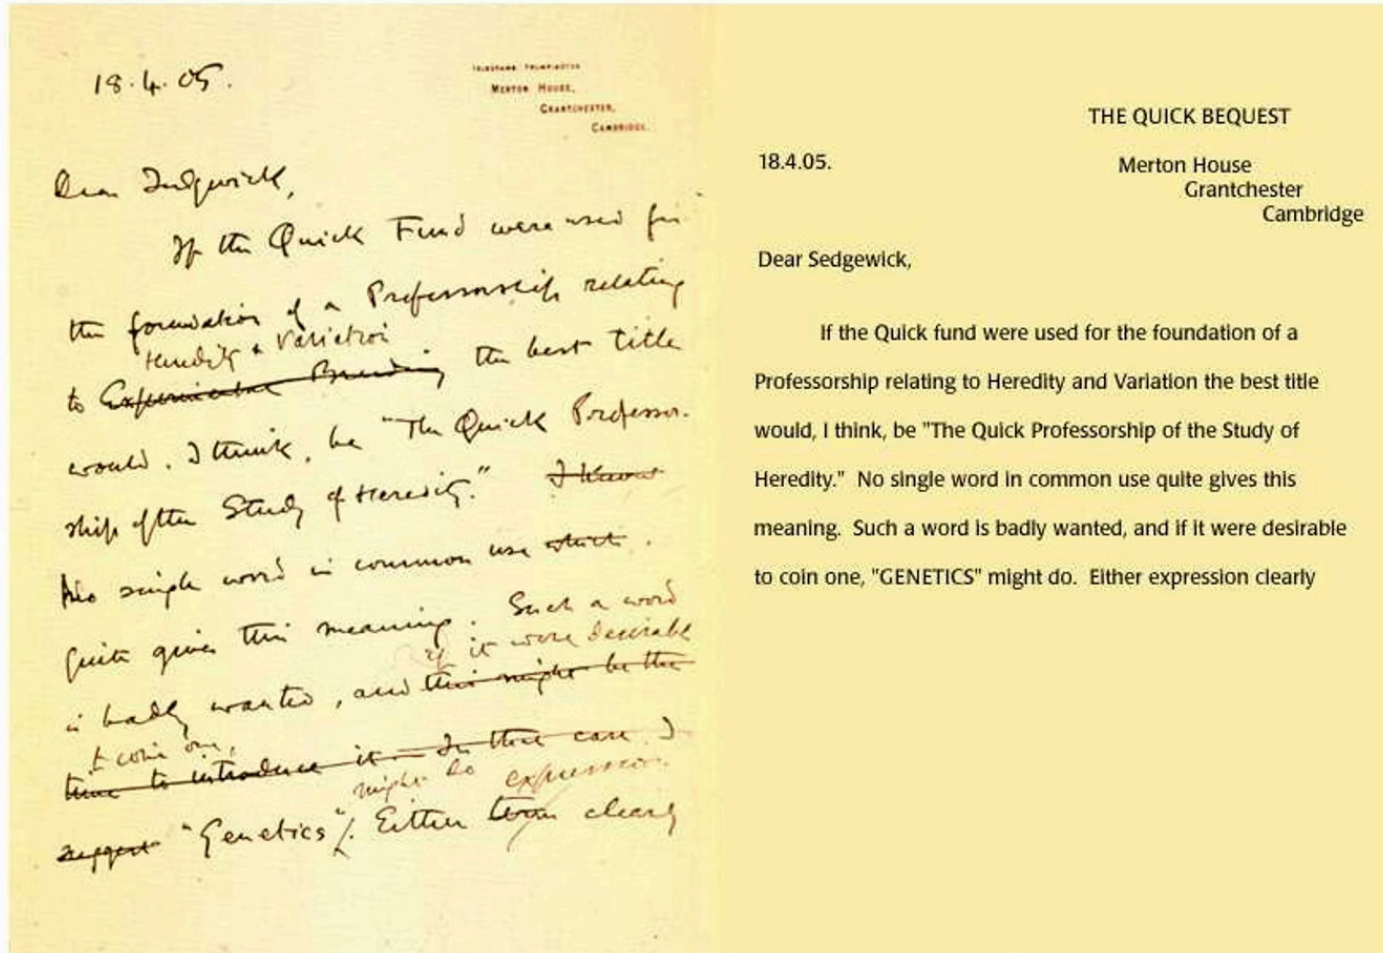 18.4.05.
TELEGRAMS TRUMPINGTON
MERTON HOUSE,
GRANTCHESTER,
CAMBRIDGE.
Dear Sedgwick,
If the Quick Fund were used for
the foundation of a Professorship relating
Heredity & Variation
to Experimental Breeding, the best title
would, I think, be "The Quick Professor-
ship of the Study of Heredity." I know
No single word in common use which
quite gives this meaning. Such a word
if it were desirable
is badly wanted, and this might be the
to coin one,
time to introduce it. In that case I
might do expression
suggest "Genetics". Either term clearly
THE QUICK BEQUEST
18.4.05.
Merton House
Grantchester
Cambridge
Dear Sedgewick,
If the Quick fund were used for the foundation of a
Professorship relating to Heredity and Variation the best title
would, I think, be "The Quick Professorship of the Study of
Heredity." No single word in common use quite gives this
meaning. Such a word is badly wanted, and if it were desirable
to coin one, "GENETICS" might do. Either expression clearly